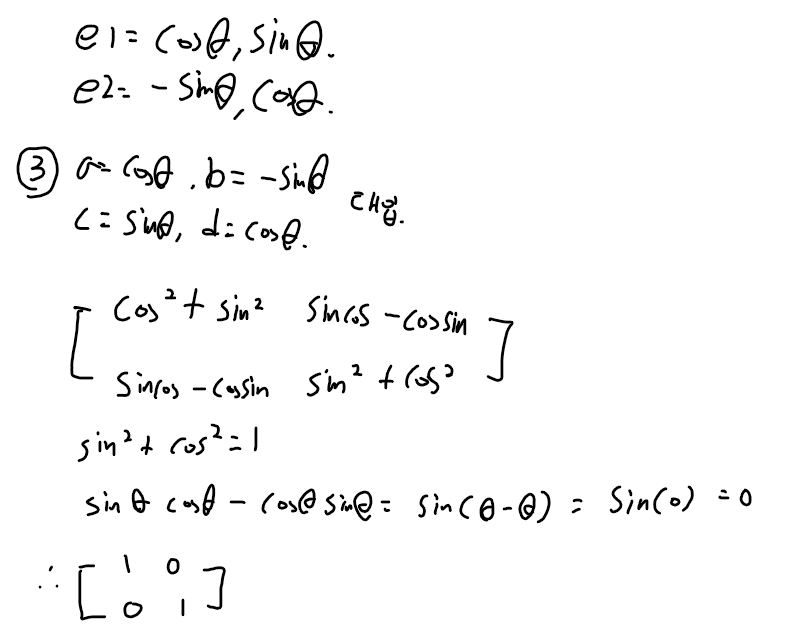 e1= cosθ, sinθ.
e2= -sinθ, cosθ.
③ a= cosθ, b= -sinθ
c= sinθ, d= cosθ. 대입.
cos²+ sin² sincos -cossin
sincos -cossin sin² + cos²
sin²+ cos²=1
sinθ cosθ - cosθ sinθ= sin(θ-θ) = sin(0) =0
∴ [ 1 0
0 1 ]